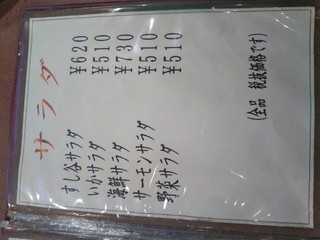 サラダ
すし谷サラダ ¥620
いかサラダ ¥510
海鮮サラダ ¥730
サーモンサラダ ¥510
野菜サラダ ¥510
(全品 税抜価格です)